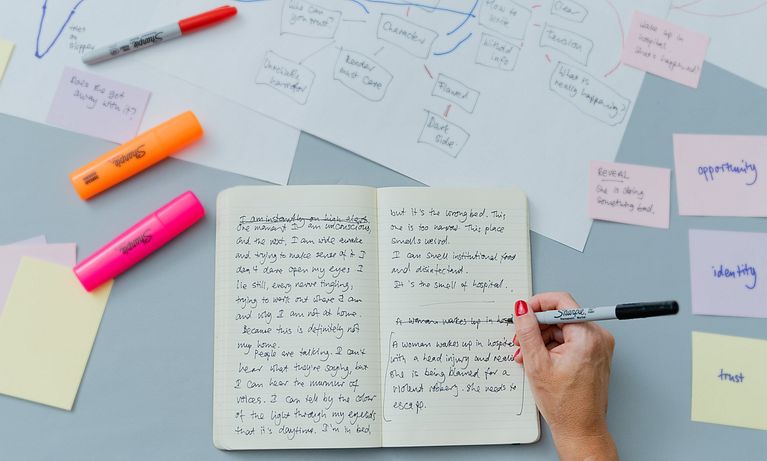 Who can
you trust?
Character
How to
write
Without
info
Clear
Tension
What is
really happening?
Unreliable
narrator
Reader
must care
Flawed
Dark
side.
Sharpie
Does he get
away with it?
Wake up in
hospital
What's happening?
REVEAL
She is doing
something bad.
opportunity
identity
trust
Sharpie
Sharpie
Sharpie
I am instantly on high alert.
One moment I am unconscious,
and the next, I am wide awake
and trying to make sense of it. I
don't dare open my eyes; I
lie still, every nerve tingling,
trying to work out where I am
and why I am not at home.
Because this is definitely not
my home.
People are talking. I can't
hear what they're saying, but
I can hear the murmur of
voices. I can tell by the colour
of the light through my eyelids
that it's daytime. I'm in bed
but it's the wrong bed. This
one is too narrow. This place
smells weird.
I can smell institutional food
and disinfectant.
It is the smell of hospital...
A woman wakes up in
A woman wakes up in hospital
with a head injury and
she is being blamed for a
violent robbery. She needs to
escape.